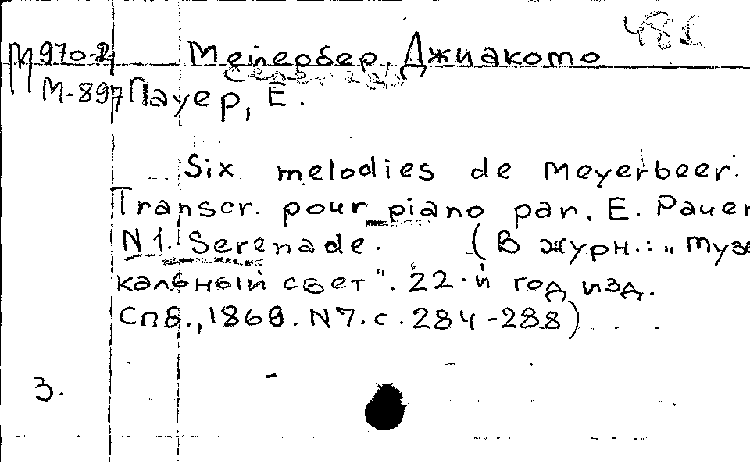 М970-2 Мейербер, Джиакомо
М-897 Пауер, Е.
Six melodies de Meyerbeer.
Transcr. pour piano par. E. Pauer
N1. Serenade. (В журн.: „музы
кальный свет". 22-й год изд.
Спб., 1868. N7. с. 284-288)
3.